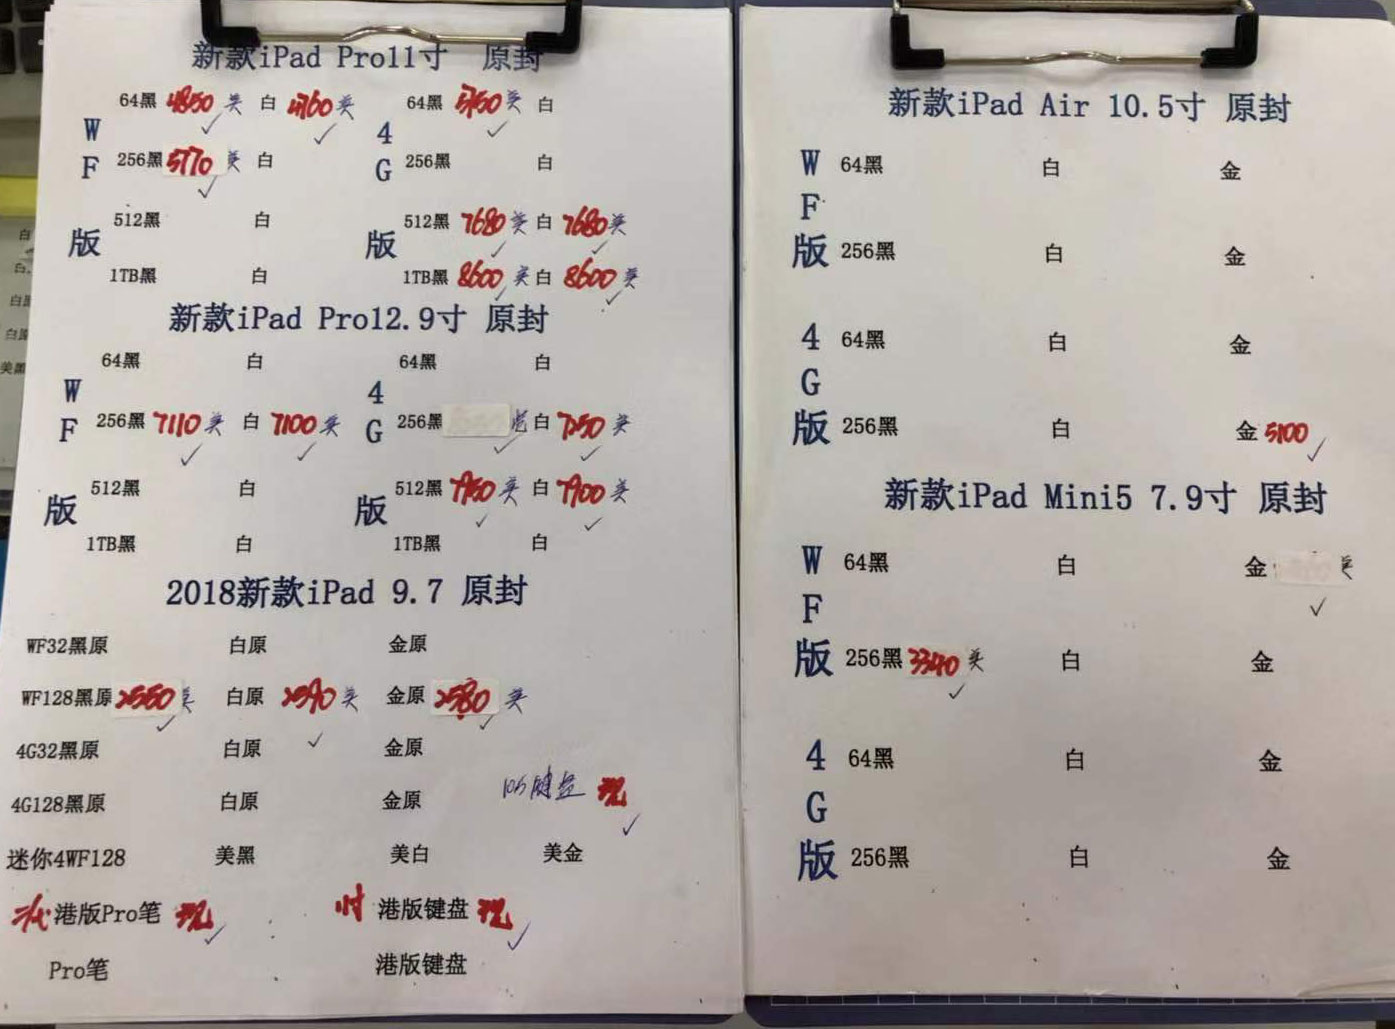 新款iPad Pro11寸 原封
W F 版
64黑 4850 美 白 4760 美
256黑 5770 美 白
512黑 白
1TB黑 白
4 G 版
64黑 5750 美 白
256黑 白
512黑 7680 美 白 7680 美
1TB黑 8600 美 白 8600 美
新款iPad Pro12.9寸 原封
W F 版
64黑 白
256黑 7110 美 白 7100 美
512黑 白
1TB黑 白
4 G 版
64黑 白
256黑 白 7250 美
512黑 美 白 7900 美
1TB黑 白
2018新款iPad 9.7 原封
WF32黑原 白原 金原
WF128黑原 2550 美 白原 2590 美 金原 2580 美
4G32黑原 白原 金原
4G128黑原 白原 金原
105键盘 现
迷你4WF128 美黑 美白 美金
港版Pro笔 现 港版键盘 现
Pro笔 港版键盘
新款iPad Air 10.5寸 原封
W F 版
64黑 白 金
256黑 白 金
4 G 版
64黑 白 金
256黑 白 金 5100
新款iPad Mini5 7.9寸 原封
W F 版
64黑 白 金 美
256黑 3340 美 白 金
4 G 版
64黑 白 金
256黑 白 金